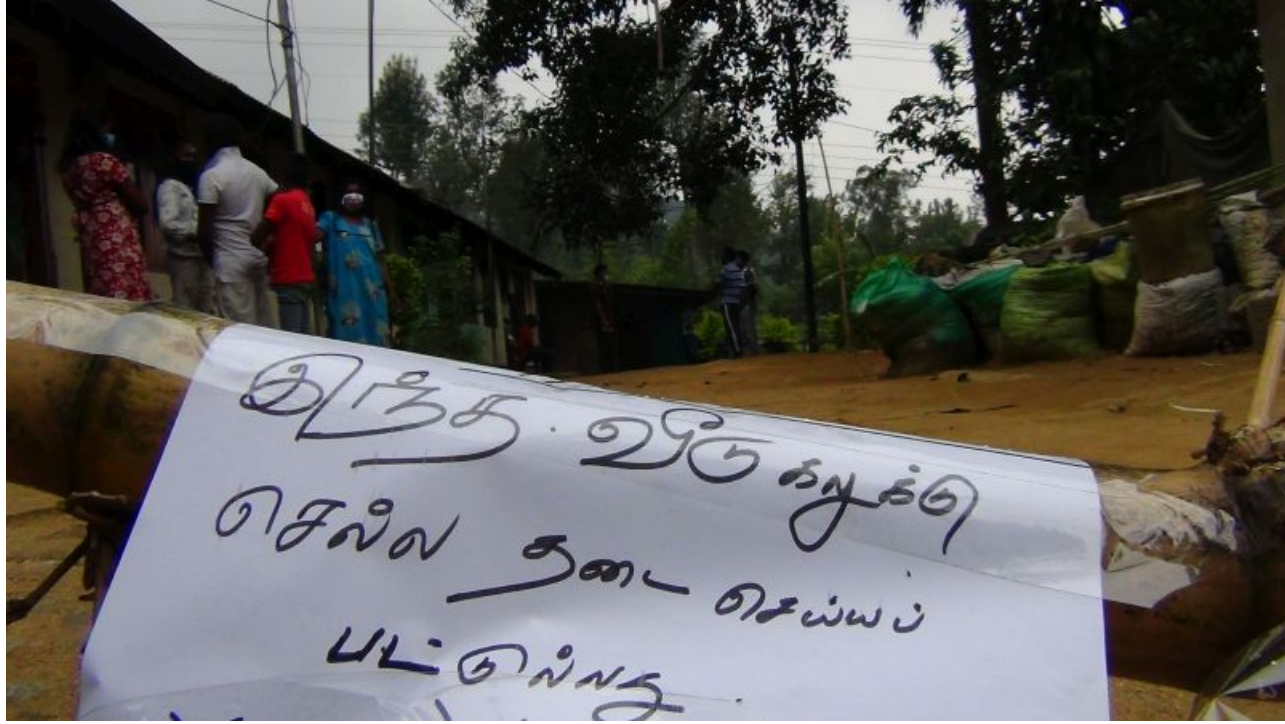 இந்த வீடுகளுக்கு
செல்ல தடை செய்யப்
பட்டுல்லது